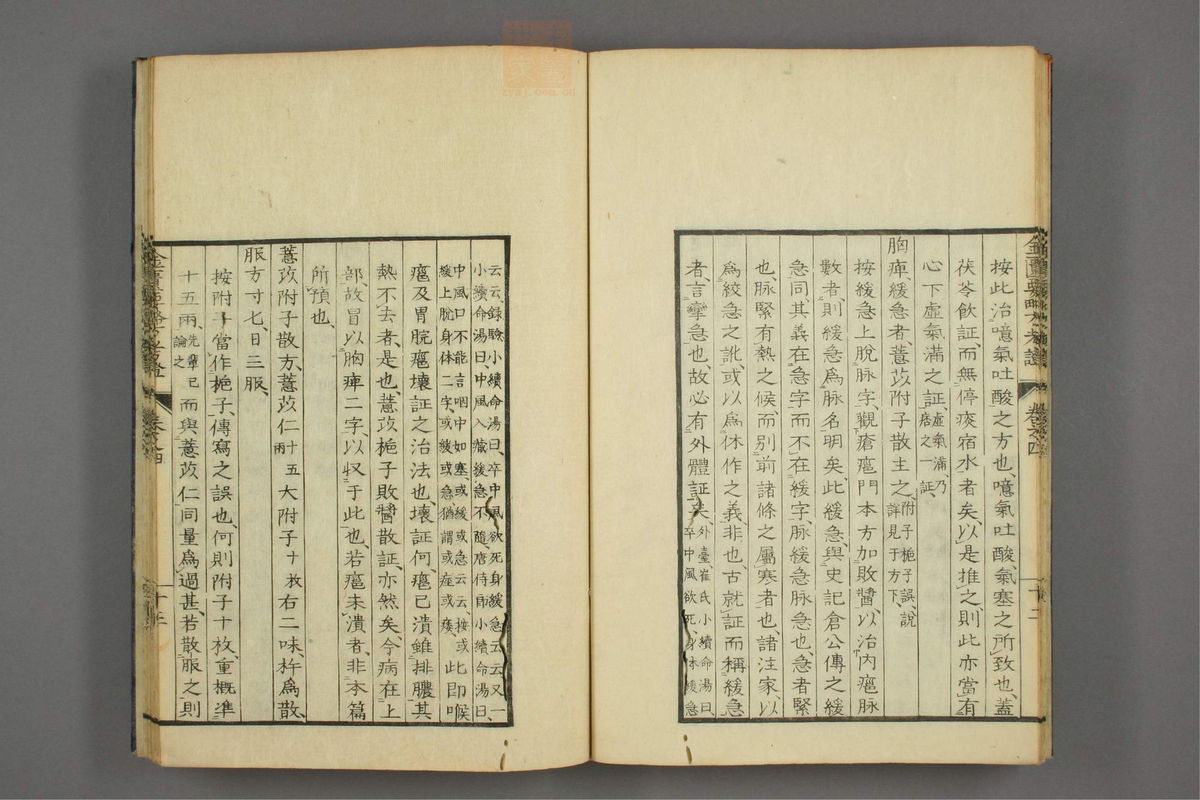 按此治噫氣吐酸之方也、噫氣吐酸、氣塞之所致也、蓋
茯苓飲証、而無停痰宿水者矣、以是推之、則此亦當有
心下虛氣滿之証、虛氣滿乃痞之一証、
胸痺緩急者、薏苡附子散主之、附子梔子誤、說詳見于方下、
按緩急上脫脉字、觀瘡癰門本方加敗醬、以治内癰脉
數者、則緩急爲脉名明矣、此緩急與史記倉公傳之緩
急同、其義在急字、而不在緩字、脉緩急脉急也、急者緊
也、脉緊有熱之候、而別前諸條之屬寒者也、諸注家、以
爲絞急之訛、或以爲休作之義、非也、古就証而稱緩急
者、言攣急也、故必有外體証矣、外臺崔氏小續命湯曰、卒中風欲死、身体緩急
云云、録驗小續命湯曰、卒中風欲死身緩急云云又一
小續命湯曰、中風入藏緩急不隨、唐侍郎小續命湯曰、
中風口不能言咽中如塞、或緩或急云云、按或此卽喉
緩上脫身体二字、或緩或急猶謂或痙或痿
癰及胃脘癰壞証之治法也、壞証何癰已潰雖排膿其
熱不去者、是也、薏苡梔子敗醬散証亦然矣、今病在上
部、故冒以胸痺二字、以収于此也、若癰未潰者、非本篇
所預也、
薏苡附子散方、薏苡仁十五兩大附子十枚右二味、杵爲散、
服方寸七、日三服、
按附子當作梔子、傳寫之誤也、何則附子十枚、重概準
十五兩、先輩已論之而與薏苡仁同量爲過甚、若散服之則
卷之四
十二